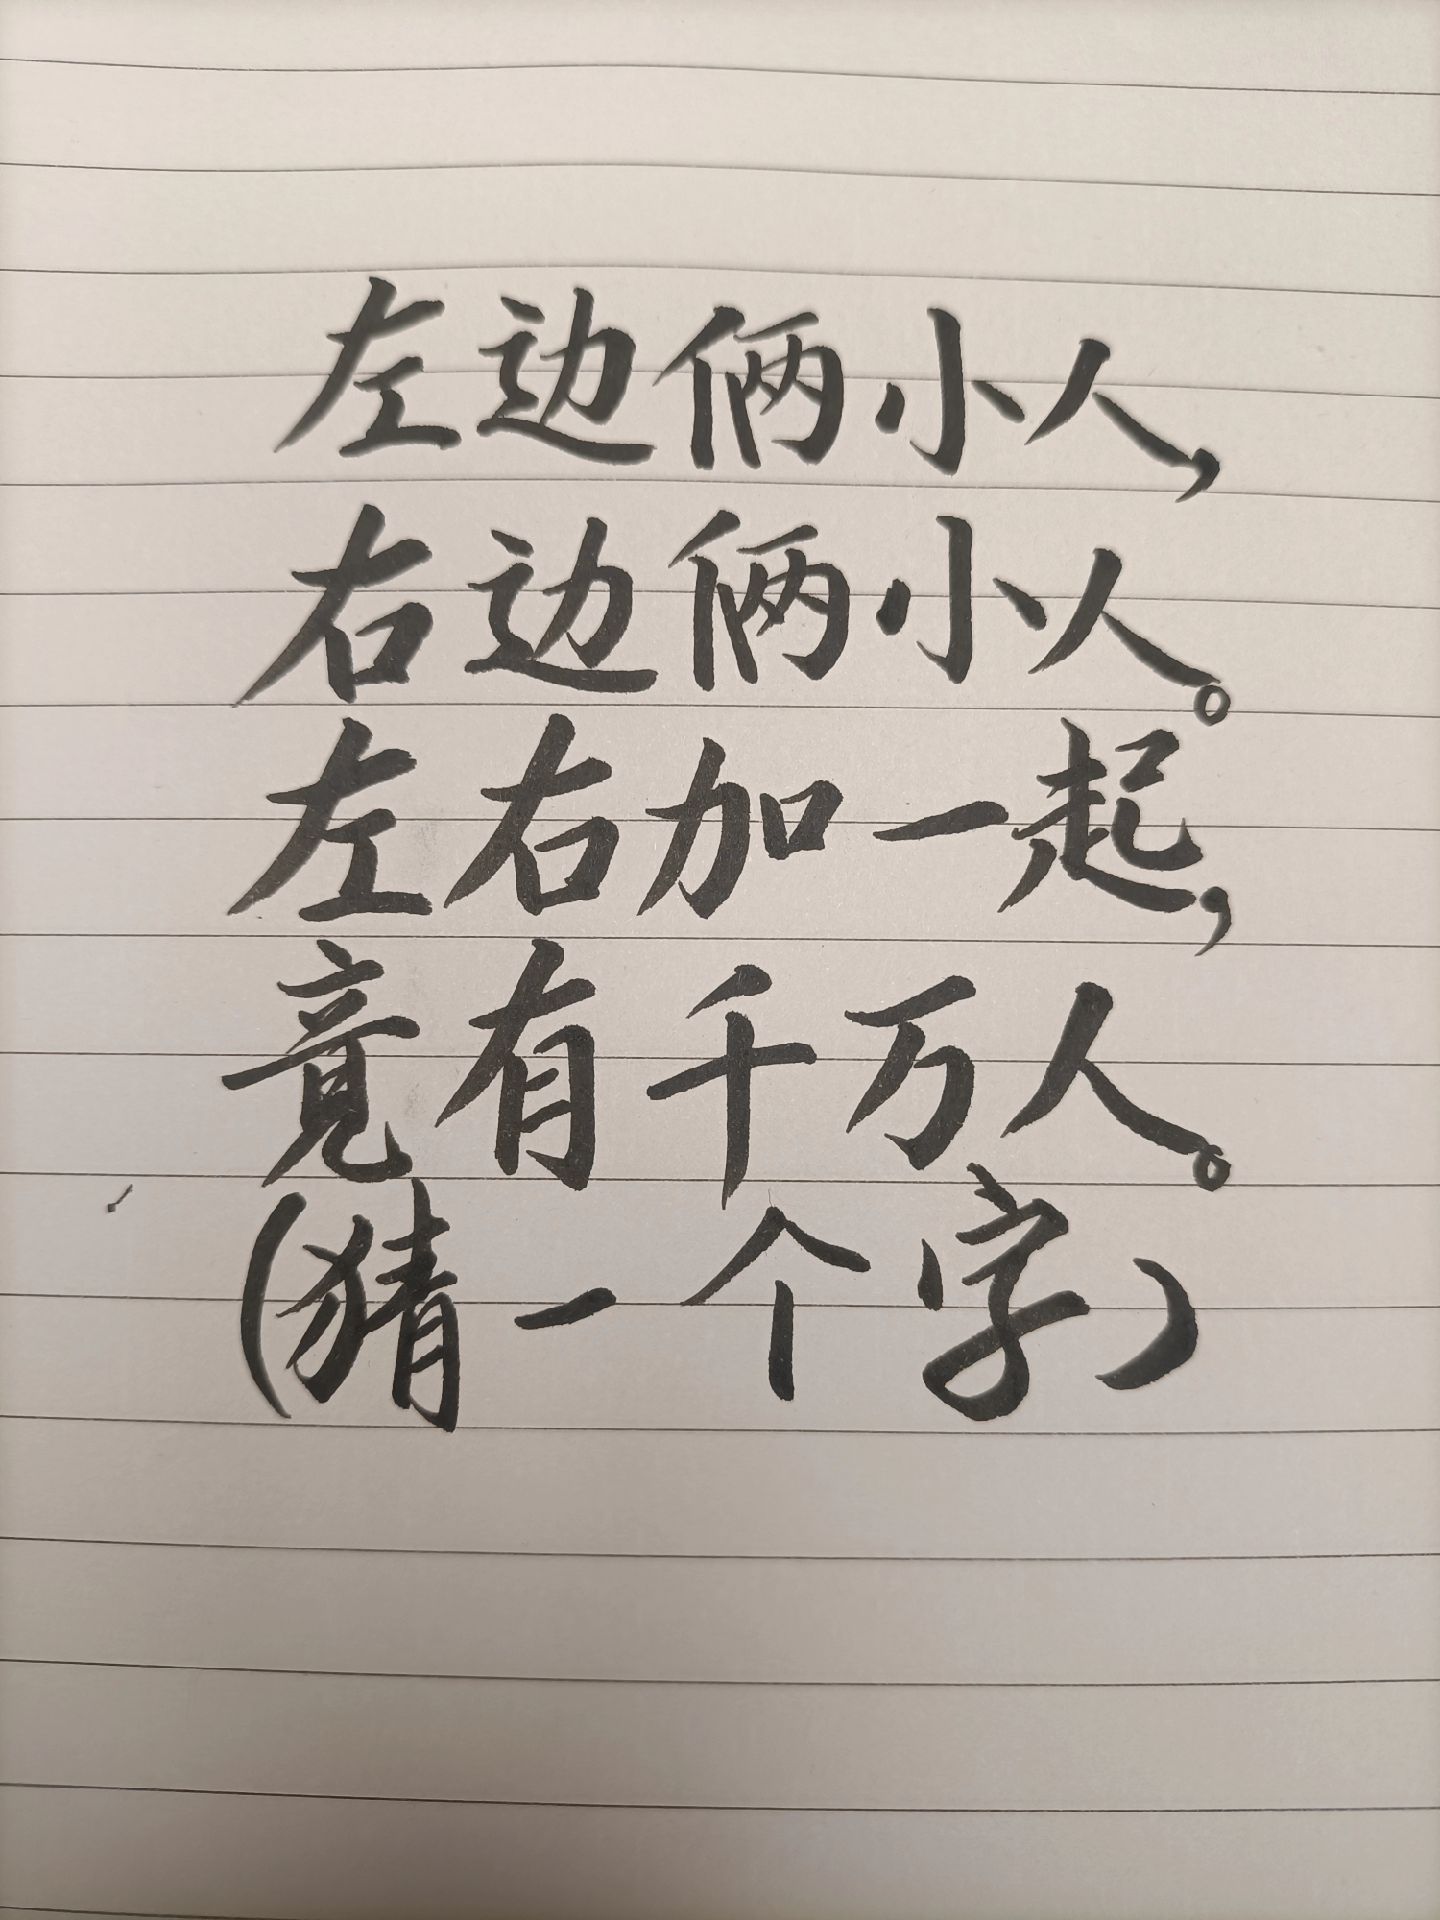 左边俩小人，
右边俩小人。
左右加一起，
竟有千万人。
（猜一个字）